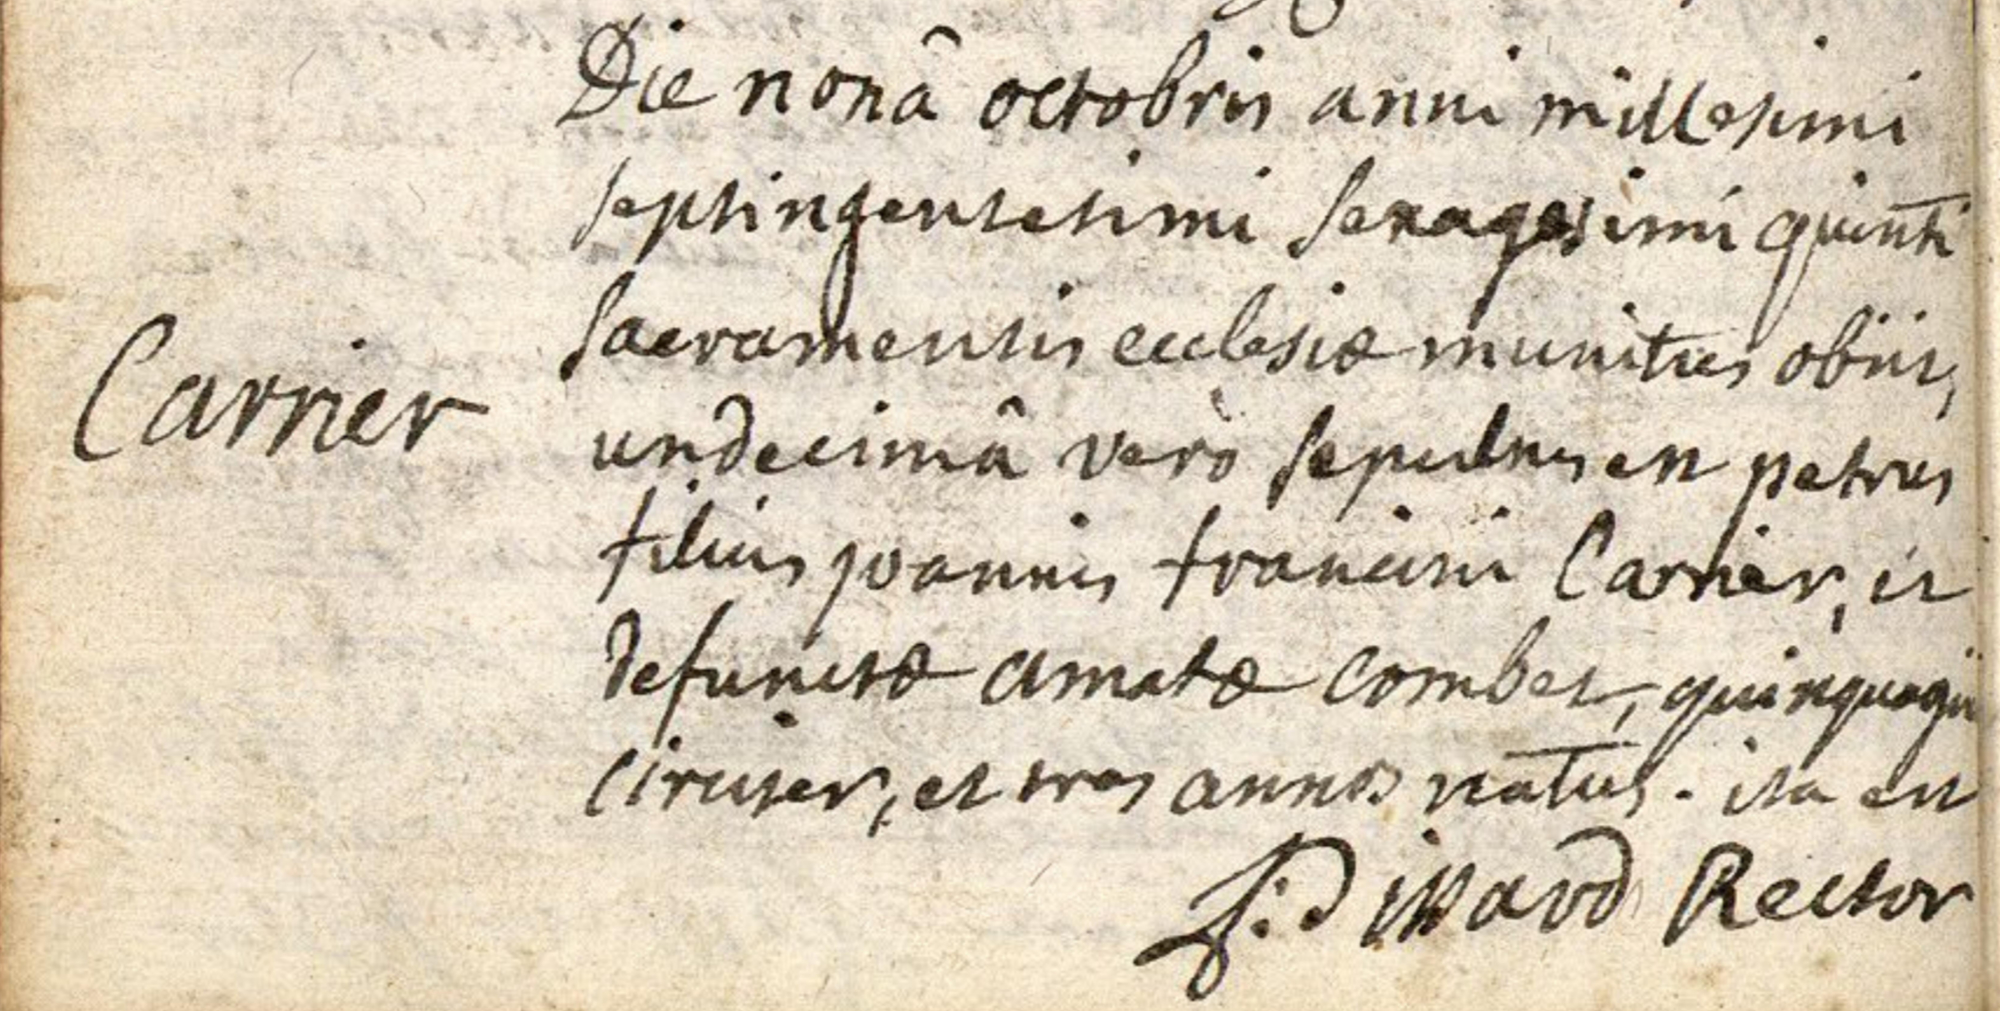 Die nonâ octobris anni millesimi
septingentesimi sexagesimi quinti
Carrier
sacramentis ecclesiæ munitus obiit,
undecimâ verò sepultus est petrus
filius joannis francisci Carrier, et
defunctæ amatæ combet, quinquagin
circiter, et tres annos natus. ita est
Rector